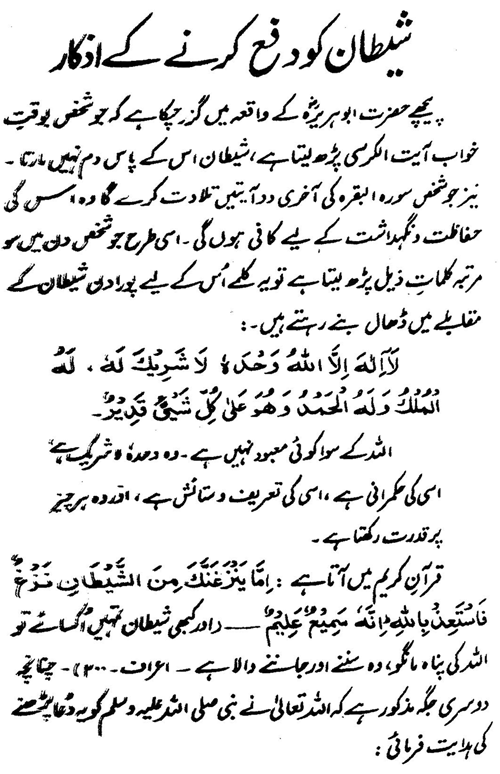 شیطان کو دفع کرنے کے اذکار
پیچھے حضرت ابو ہریرہؓ کے واقعہ میں گزر چکا ہے کہ جو شخص بوقتِ
خواب آیت الکرسی پڑھ لیتا ہے، شیطان اس کے پاس دم نہیں مارتا۔
نیز جو شخص سورہ البقرہ کی آخری دو آیتیں تلاوت کرے گا وہ اس کی
حفاظت و نگہداشت کے لیے کافی ہوں گی۔ اسی طرح جو شخص دن میں سو
مرتبہ کلماتِ ذیل پڑھ لیتا ہے تو یہ کلمے اُس کے لیے پورا دن شیطان کے
مقابلے میں ڈھال بنے رہتے ہیں۔:
لَآ اِلٰهَ اِلَّا اللهُ وَحْدَهٗ لَا شَرِيْكَ لَهٗ، لَهُ
الْمُلْكُ وَلَهُ الْحَمْدُ وَهُوَ عَلٰى كُلِّ شَيْءٍ قَدِيْرٌ۔
اللہ کے سوا کوئی معبود نہیں ہے۔ وہ وحدہٗ لاشریک ہے
اسی کی حکمرانی ہے، اسی کی تعریف و ستائش ہے، اور وہ ہر چیز
پر قدرت رکھتا ہے۔
قرآن کریم میں آتا ہے : اِمَّا يَنْزَغَنَّكَ مِنَ الشَّيْطَانِ نَزْغٌ
فَاسْتَعِذْ بِاللهِ اِنَّهٗ سَمِيْعٌ عَلِيْمٌ — (اور کبھی شیطان تمہیں اُکسائے تو
اللہ کی پناہ مانگو، وہ سننے اور جاننے والا ہے۔ اعراف۔ ۲۰۰)۔ چنانچہ
دوسری جگہ مذکور ہے کہ اللہ تعالیٰ نے نبی صلی اللہ علیہ وسلم کو یہ دُعا پڑھنے
کی ہدایت فرمائی :